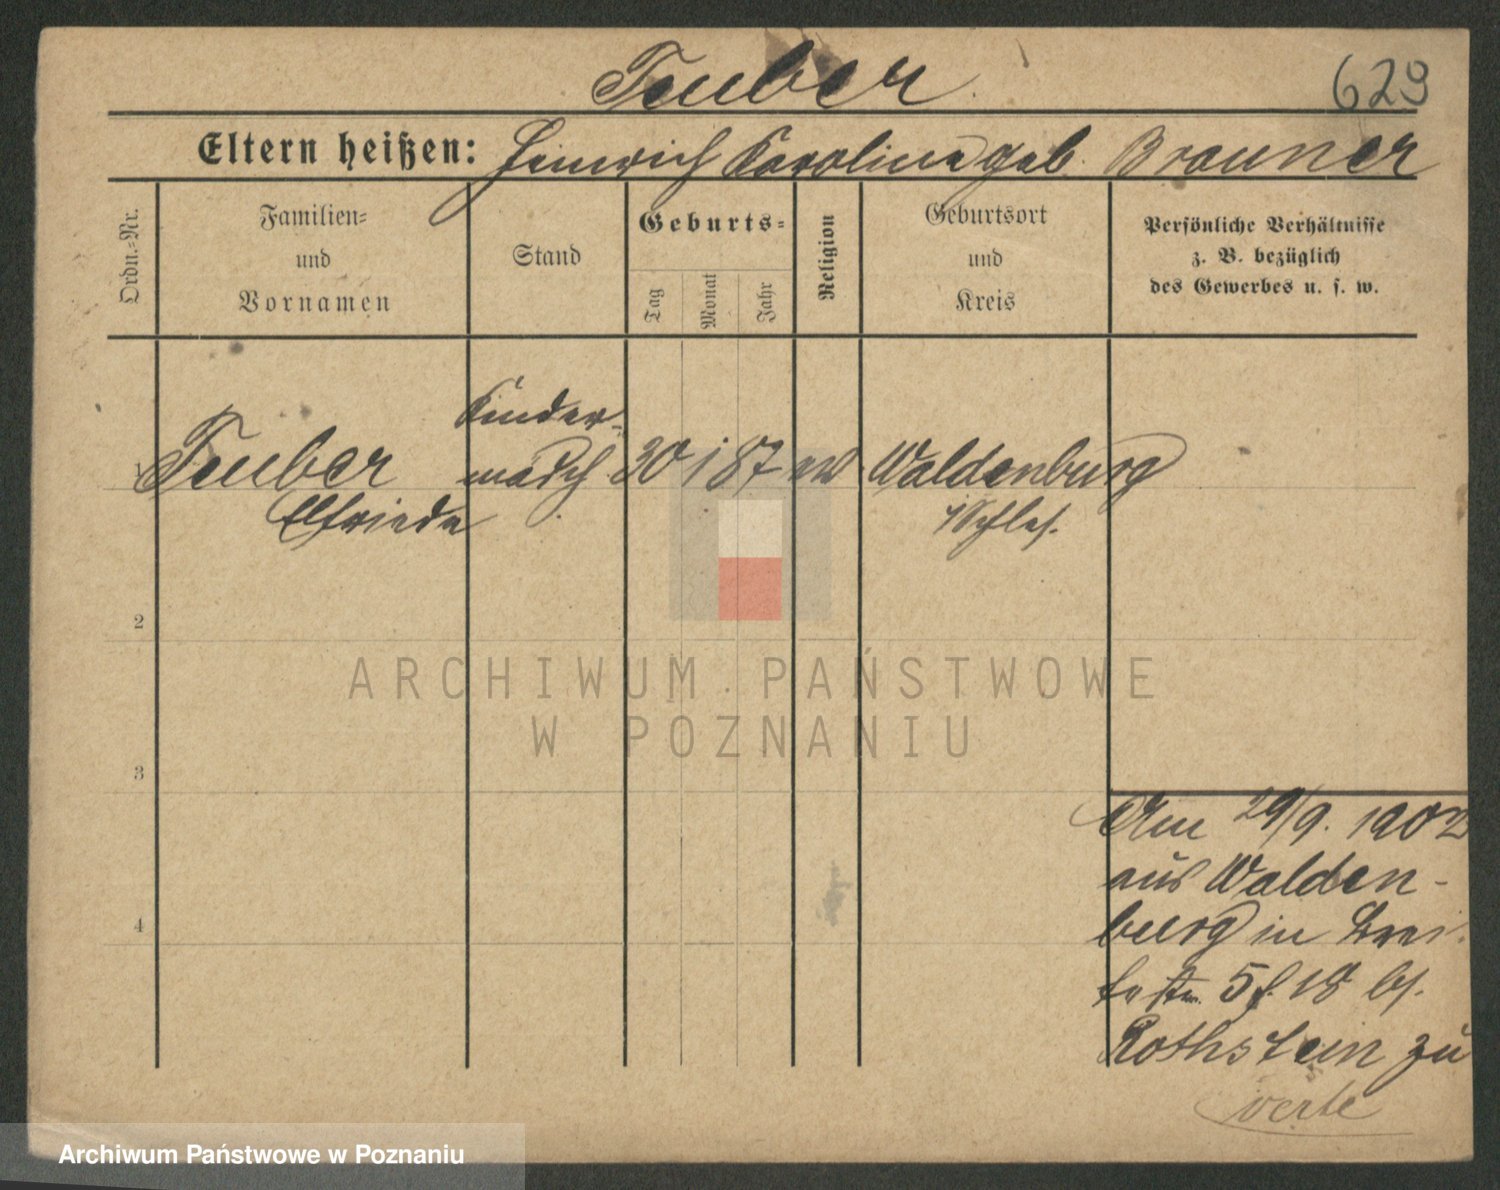 Teuber
629
Eltern heißen: Heinrich Karoline geb. Brauner
Ordn.-Nr.
Familien-
und
Vornamen
Stand
Geburts-
Tag
Monat
Jahr
Religion
Geburtsort
und
Kreis
Persönliche Verhältnisse
z. B. bezüglich
des Gewerbes u. s. w.
1
Teuber
Elfriede
Kinder-
mädch.
30 1 87 ev
Waldenburg
i/Schles.
2
3
4
Am 29/9. 1902
aus Walden-
burg in Brei-
testr. 5 f. 18 bs.
Rothstein zu
verte
ARCHIWUM PAŃSTWOWE
W POZNANIU
Archiwum Państwowe w Poznaniu